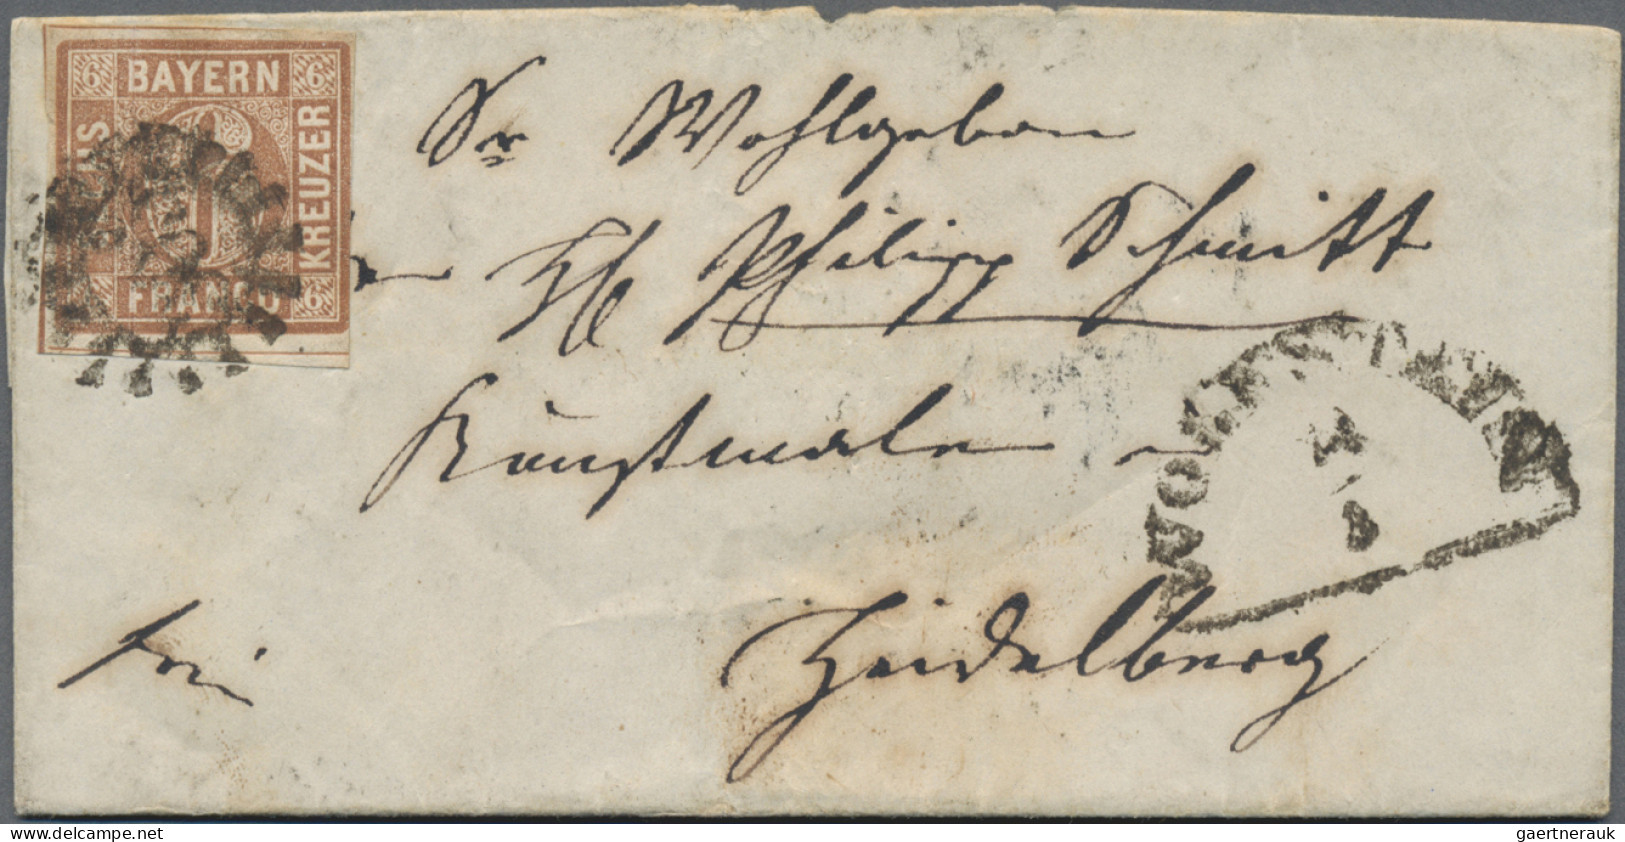 6 BAYERN 6
KREUZER
FRANCO 6
Sr Wohlgeboren
Philipp Schmitt
Kunstmaler
Heidelberg
frei
www.delcampe.net
gaertnerauk